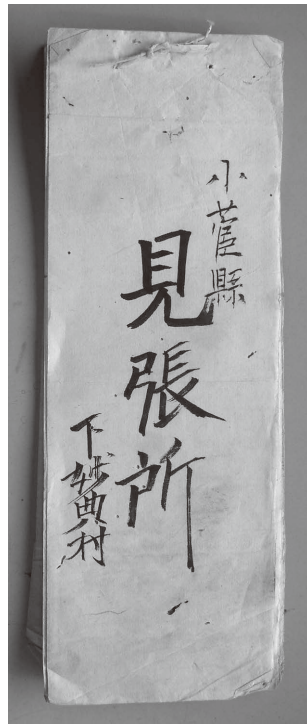 小菅縣
見張所
下妙典村